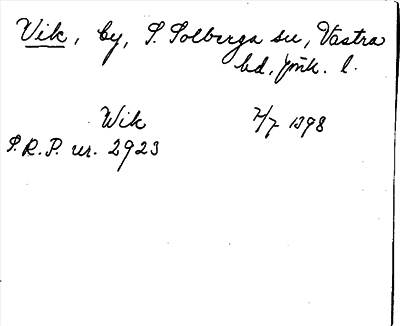 Vik, by, S. Solberga sn, Västra
hd, Jönk. l.
Wik 7/7 1398
S.R.P. nr. 2923